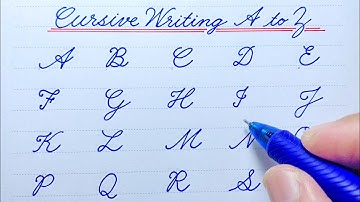 Cursive Writing A to Z
A B C D E
F G H I J
K L M N
P Q R S